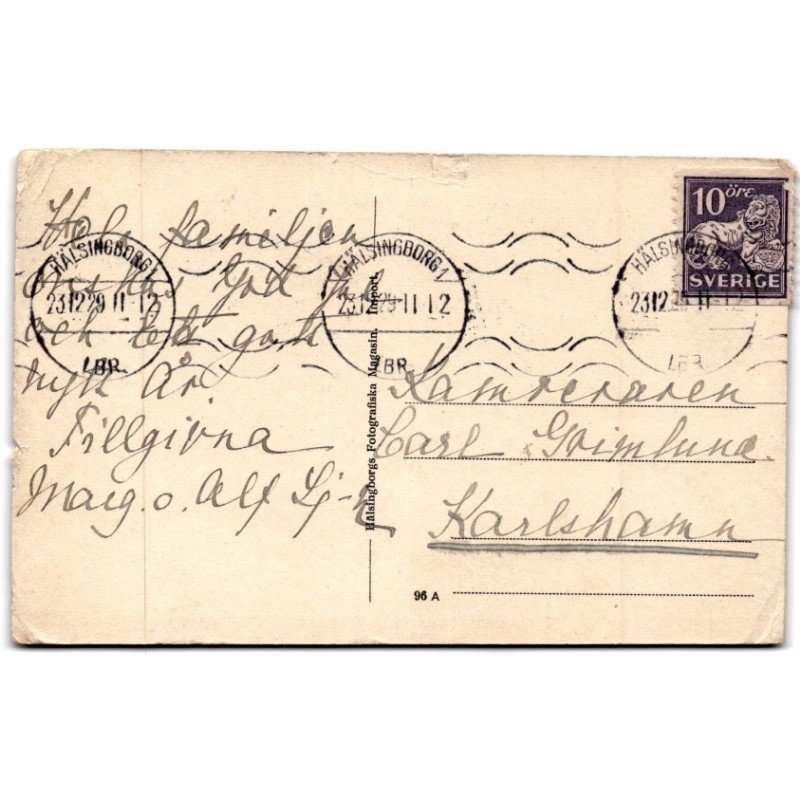 Hela familjen
önskas God Jul
och ett gott
nytt År.
Tillgivna
Maig. o. Alf Lj-g
HÄLSINGBORG 1
23.12.29.11-12
LBR.
HÄLSINGBORG 1
23.12.29-11-12
LBR.
HÄLSINGBORG
23.12.29-11-12
LBR
10 ÖRE
SVERIGE
Hälsingborgs Fotografiska Magasin. Import.
Kamreraren
Carl Grimlund
Karlshamn
96 A